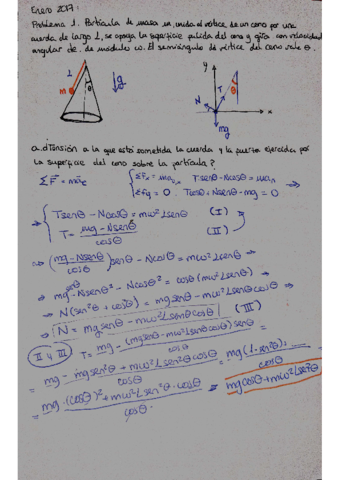 Enero 2017:
Problema 1. Partícula de masa m, unida al vértice de un cono por una
cuerda de largo L, se apoya la superficie pulida del cono y gira con velocidad
angular de módulo ω. El semiángulo de vértice del cono vale θ.
L
M
θ
g
y
N
T
θ
x
mg
a. ¿Tensión a la que está sometida la cuerda y la fuerza ejercida por
la superficie del cono sobre la partícula?
ΣF = ma
Tsenθ - Ncosθ = ma
ΣFy = 0 . Tcosθ + Nsenθ - mg = 0
Tsenθ - Ncosθ = mω²Lsenθ (I)
T = mg - Nsenθ / cosθ (II)
⇒ (mg - Nsenθ / cosθ) senθ - Ncosθ = mω²Lsenθ ⇒
⇒ mg senθ - Nsenθ² - Ncosθ² = cosθ (mω²Lsenθ) ⇒
⇒ N(sen²θ + cos²θ) = mgsenθ - mω²Lsenθcosθ ⇒
⇒ N = mgsenθ - mω²Lsenθcosθ (III)
II y III T = mg - (mgsenθ - mω²Lsenθcosθ) senθ / cosθ =
= mg - mgsen²θ + mω²Lsen²θcosθ / cosθ = mg(1 - sen²θ) / cosθ
= mg · (cosθ)² + mω²Lsen²θ · cosθ / cosθ = mgcosθ + mω²Lsen²θ